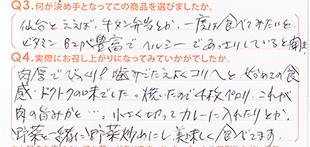 Q3.何が決め手となってこの商品を選びましたか。
仙台と云えば、牛タン弁当とか、一度は食べてみたいと
ビタミンB2が豊富でヘルシーであっさりしていると聞き
Q4.実際にお召し上がりになってみていかがでしたか。
肉厚でびっくり!塩かげんよくコリヘと、始めての食
感・ドクトクの味でした。焼いたので4枚ペロリ、これが
肉の旨みかと…。小さく切ってカレーに入れたりとか、
野菜と一緒に野菜炒めにし美味しく食べてます。